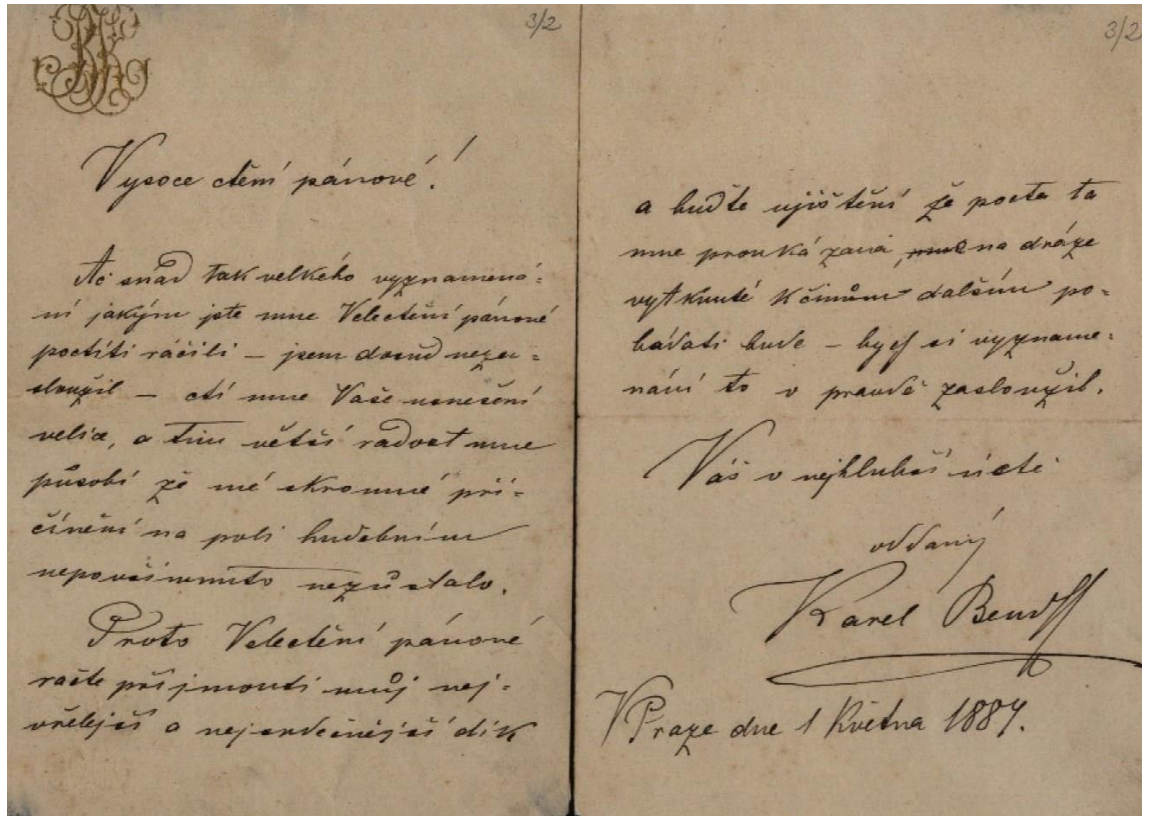 3/2
Vysoce ctění pánové!
Ač snad tak velkého vyznamená-
ní jakým jste mne Velectění pánové
poctíti ráčili – jsem dosud neza-
sloužil – ctí mne Vaše usnešení
velice, a tím větší radost mne
působí že mé skromné při-
činění na poli hudebním
nepovšimnuto nezůstalo.
Proto Velectění pánové
račte přijmouti můj nej-
vřelejší a nejsrdečnější dík
3/2
a buďte ujištění že pocta ta
mne prouká zaná, na dráze
vytknuté k činům dalším po-
bádati bude – bych si vyzname-
nání to v pravdě zasloužil.
Váš v nejhlubší úctě
oddaný
Karel Bendl
V Praze dne 1 Května 1887.